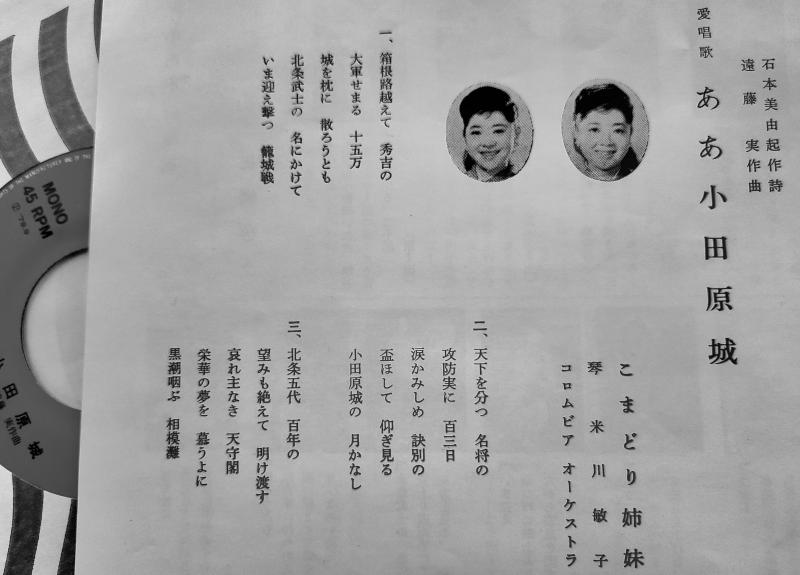 石本美由起作詩
遠藤 実作曲
愛唱歌 ああ小田原城
こまどり姉妹
琴 米川敏子
コロムビア オーケストラ
一、箱根路越えて 秀吉の
大軍せまる 十五万
城を枕に 散ろうとも
北条武士の 名にかけて
いま迎え撃つ 籠城戦
二、天下を分つ 名将の
攻防実に 百三日
涙かみしめ 訣別の
盃ほして 仰ぎ見る
小田原城の 月かなし
三、北条五代 百年の
望みも絶えて 明け渡す
哀れ主なき 天守閣
栄華の夢を 慕うよに
黒潮咽ぶ 相模灘
MONO
45 RPM
小田原城